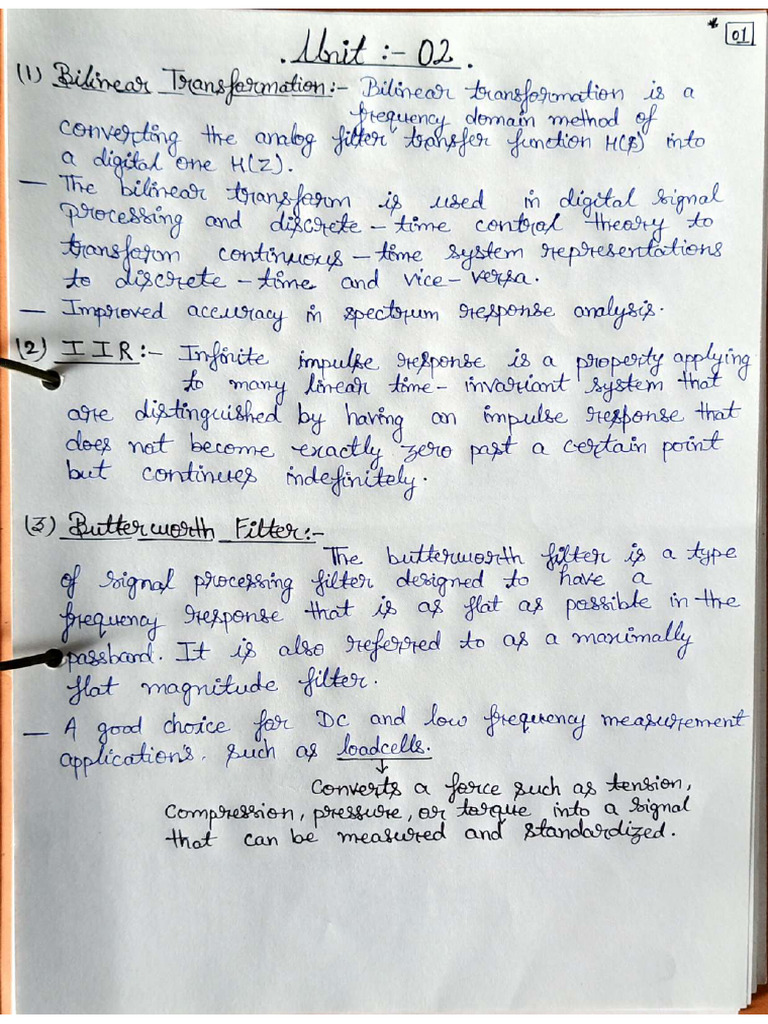 * 01
. Unit :- 02 .
(1) Bilinear Transformation:- Bilinear transformation is a
frequency domain method of
converting the analog filter transfer function H(s) into
a digital one H(Z).
— The bilinear transform is used in digital signal
processing and discrete-time control theory to
transform continuous-time system representations
to discrete-time and vice-versa.
— Improved accuracy in spectrum response analysis.
(2) IIR:- Infinite impulse response is a property applying
to many linear time-invariant system that
are distinguished by having an impulse response that
does not become exactly zero past a certain point
but continues indefinitely.
(3) Butterworth Filter:-
The butterworth filter is a type
of signal processing filter designed to have a
frequency response that is as flat as possible in the
passband. It is also referred to as a maximally
flat magnitude filter.
— A good choice for DC and low frequency measurement
applications, such as loadcells.
↓
Converts a force such as tension,
compression, pressure, or torque into a signal
that can be measured and standardized.